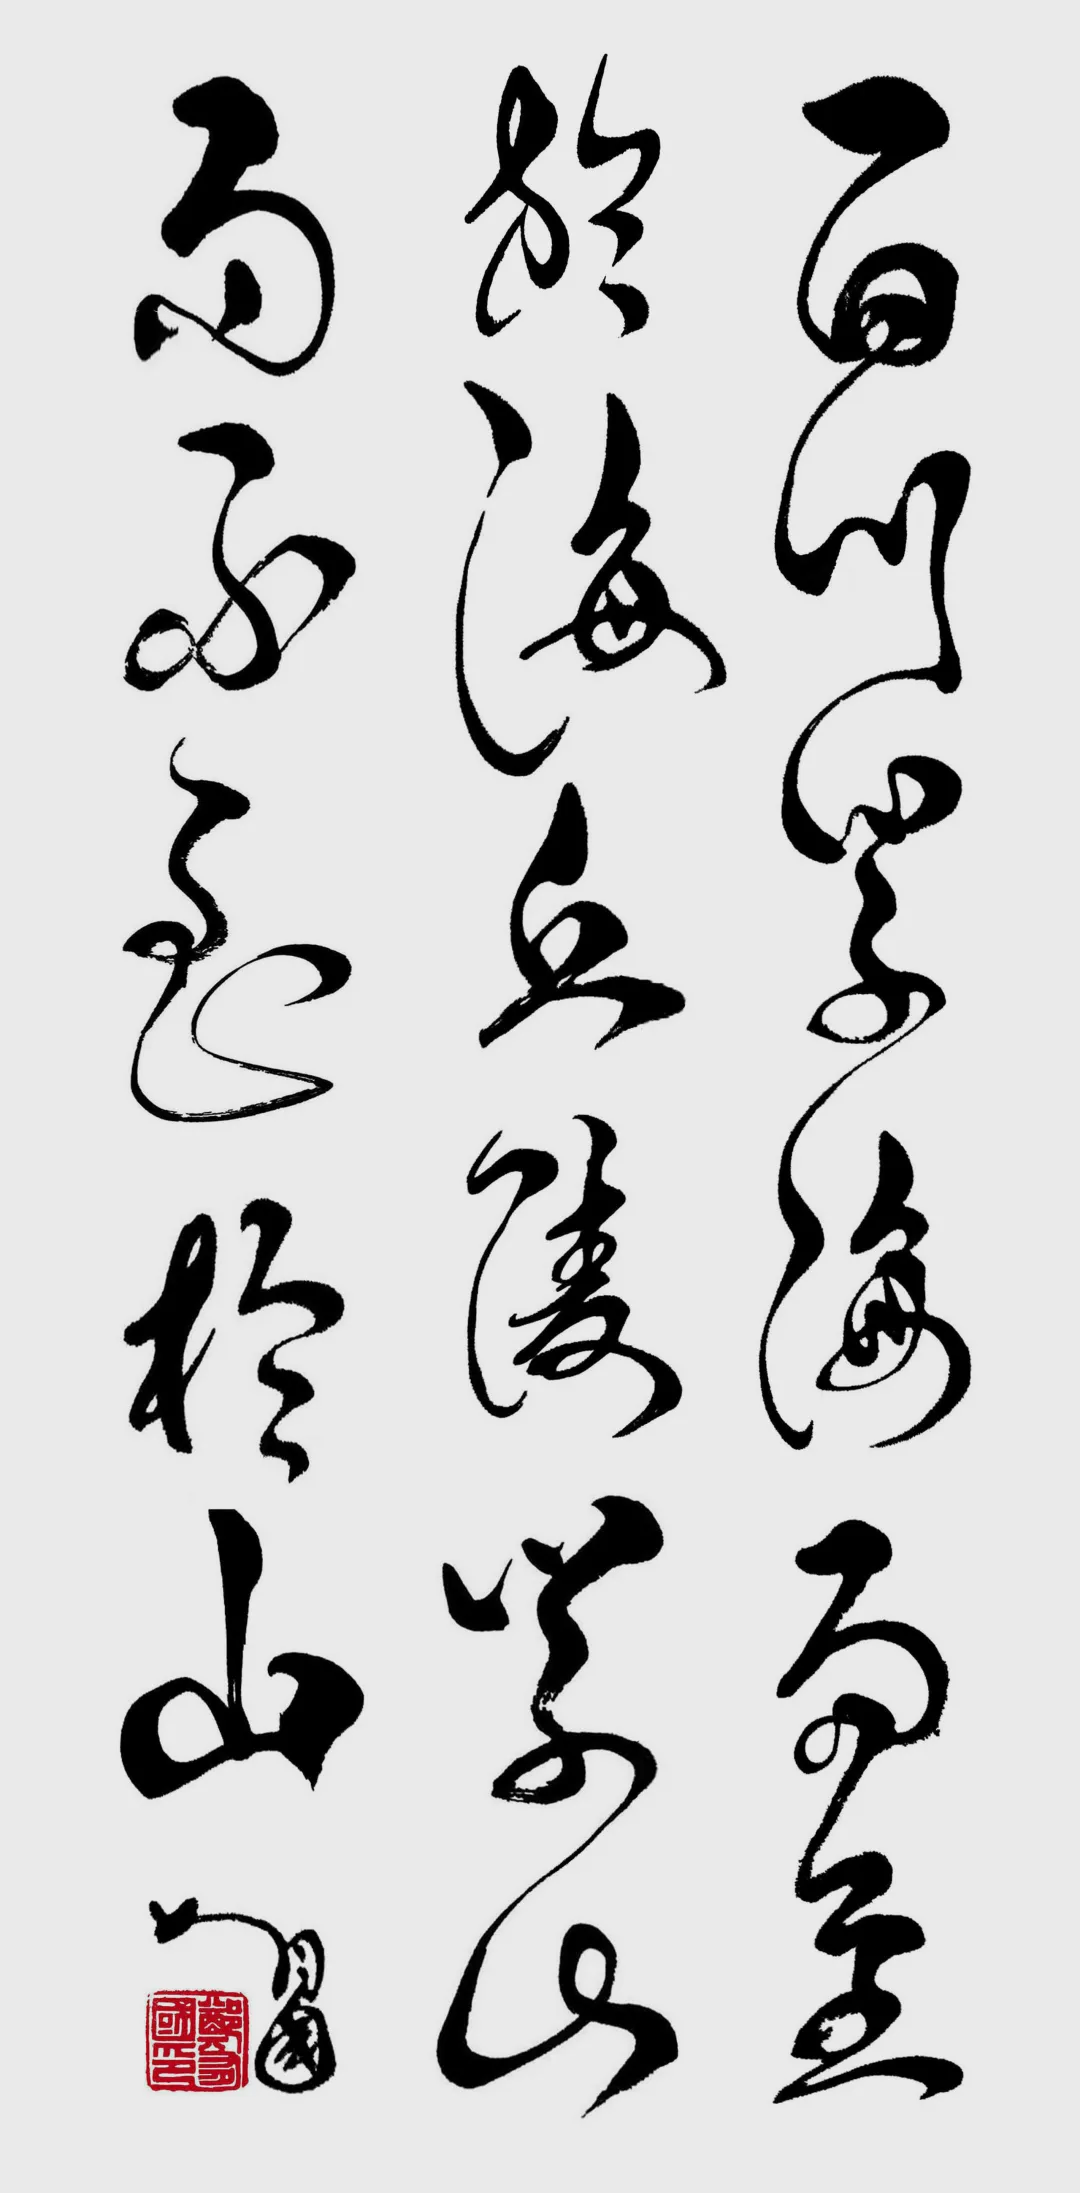 百川學海而至
於海丘陵學山
而不至於山
有國